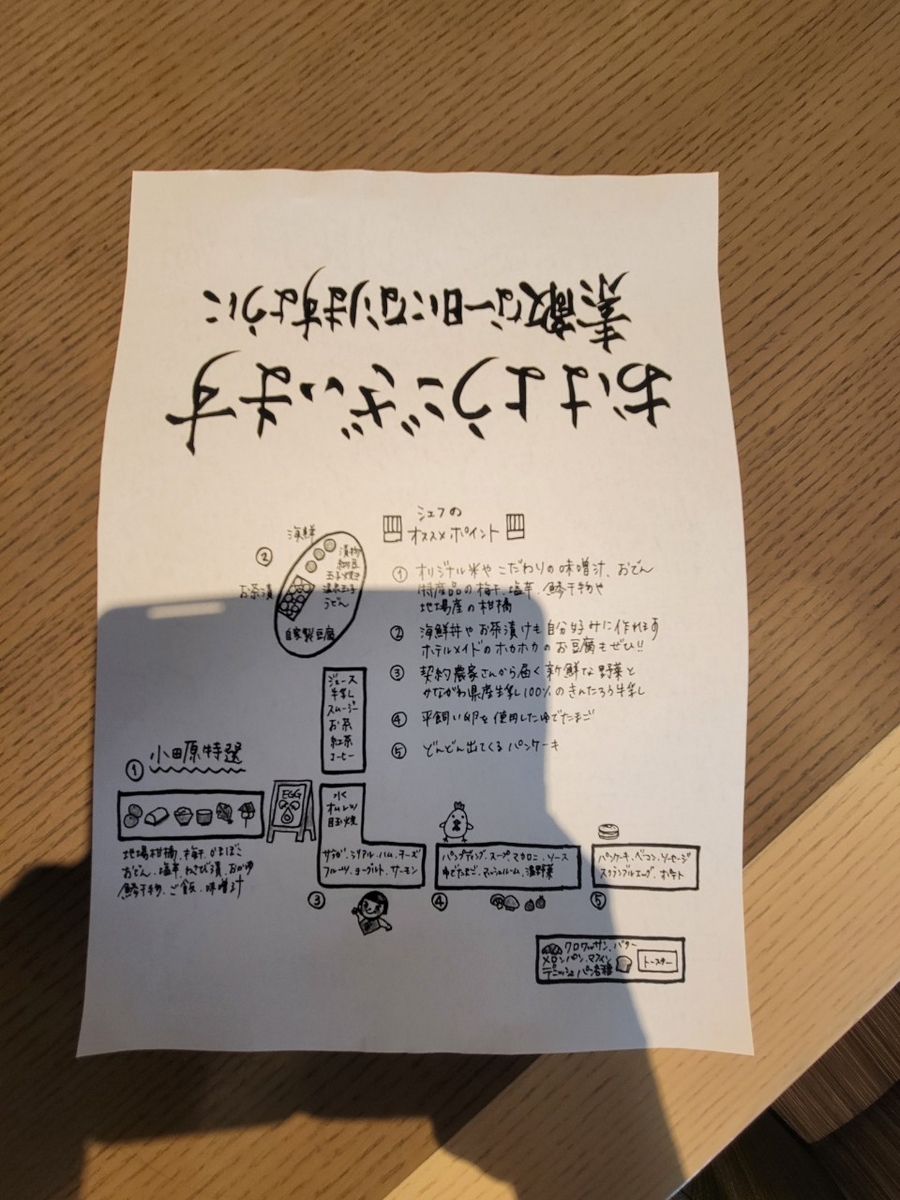 おはようございます
素敵な一日になりますように
シェフの
オススメポイント
① オリジナル米やこだわりの味噌汁、おでん
特産品の梅干、塩辛、鯵干物や
地場産の柑橘
② 海鮮丼やお茶漬けも自分好みに作れます
ホテルメイドのホカホカのお豆腐もぜひ!!
③ 契約農家さんから届く新鮮な野菜と
かながわ県産生乳100%のきんたろう牛乳
④ 平飼い卵を使用したゆでたまご
⑤ どんどん出てくるパンケーキ
②
海鮮
お茶漬
漬物
納豆
玉子焼き
温泉玉子
うどん
自家製豆腐
ジュース
牛乳
スムージー
お茶
紅茶
コーヒー
① 小田原特選
地場柑橘、梅干、かまぼこ
おでん、塩辛、わさび漬、おかゆ
鯵干物、ご飯、味噌汁
EGG
水
オムレツ
目玉焼
サラダ、シリアル、ハム、チーズ
フルーツ、ヨーグルト、サーモン
③
パンプディング、スープ、マカロニ、ソース
ゆでたまご、マッシュルーム、温野菜
④
パンケーキ、ベーコン、ソーセージ
スクランブルエッグ、ポテト
⑤
クロワッサン、バター
メロンパン、マフィン
デニッシュ、パン各種
トースター